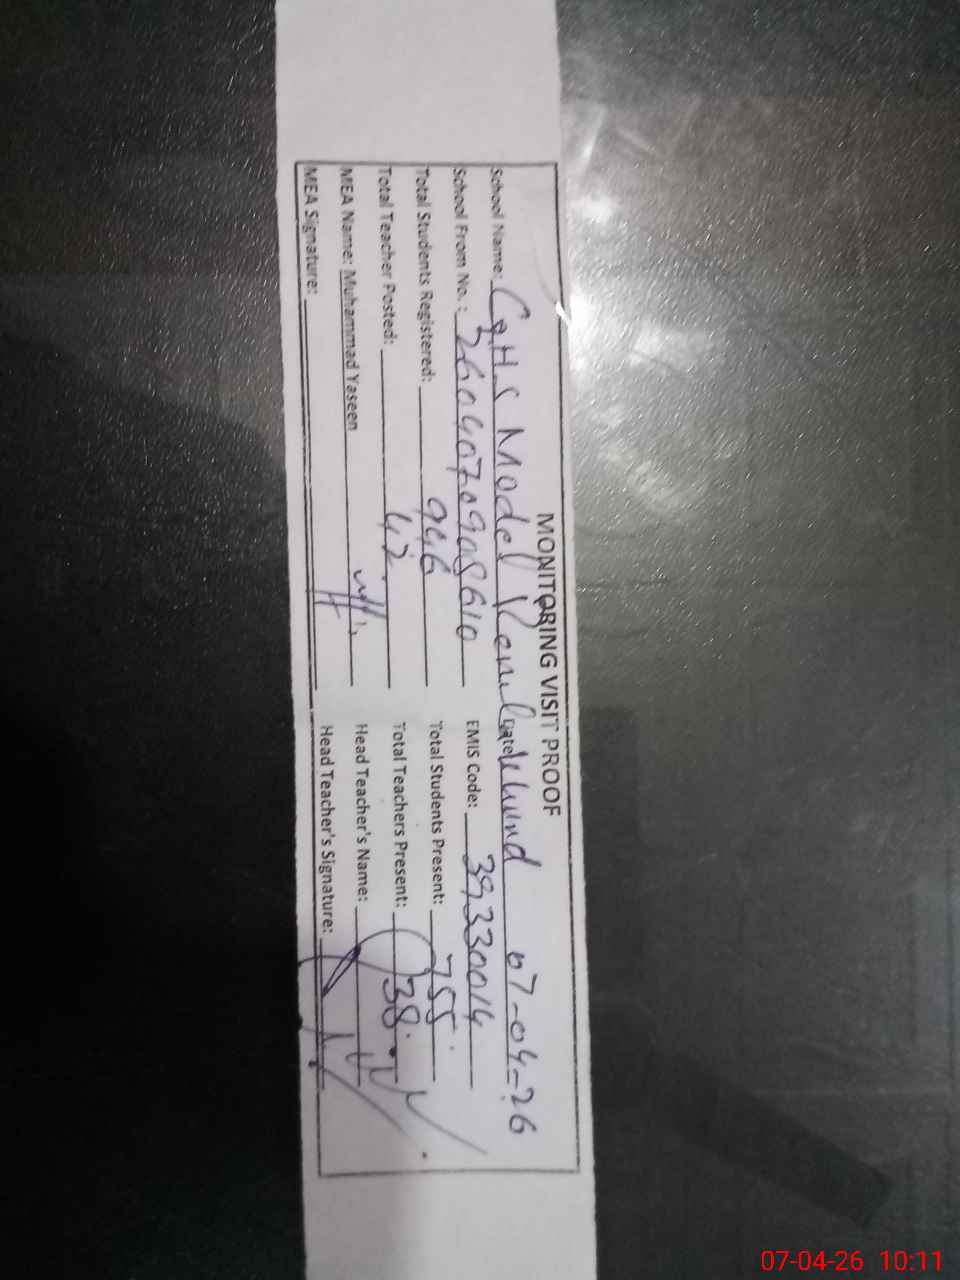 MONITORING VISIT PROOF
School Name: GHS Model Date: 07-04-26
School From No.: 3604070908610 EMIS Code: 39330014
Total Students Registered: 946 Total Students Present: 755
Total Teacher Posted: 42 Total Teachers Present: 38
MEA Name: Muhammad Yaseen Head Teacher's Name:
MEA Signature: Head Teacher's Signature:
07-04-26 10:11